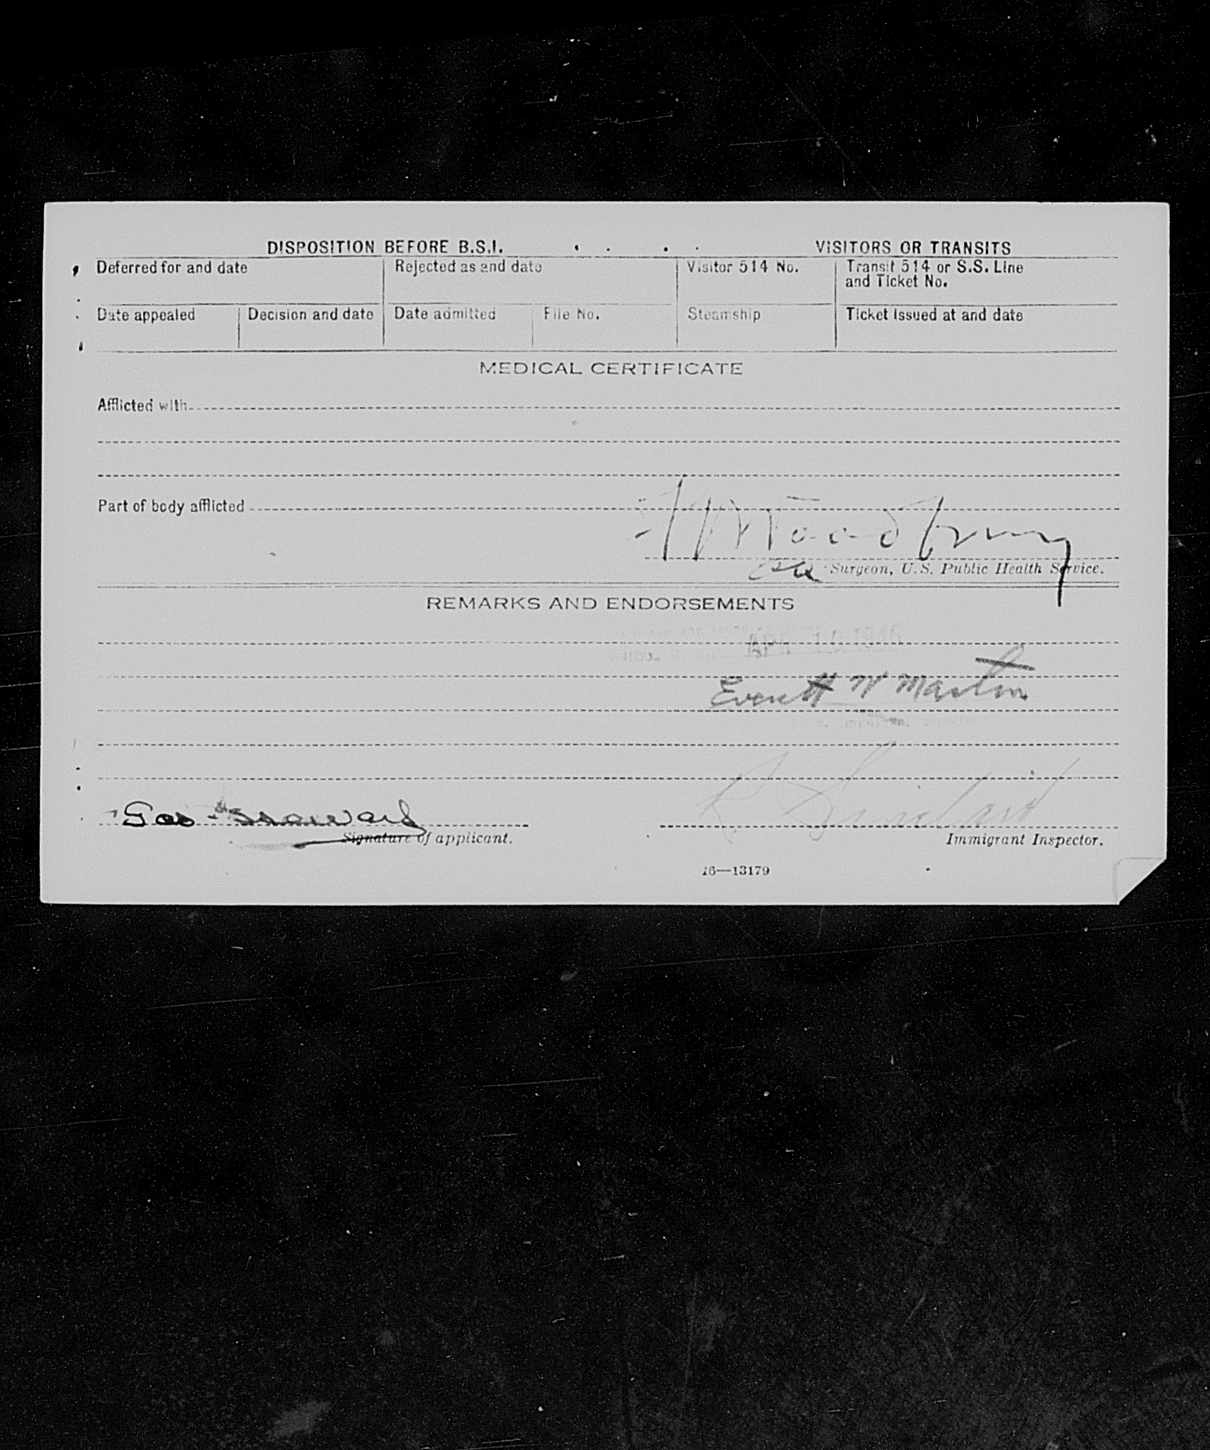 DISPOSITION BEFORE B.S.I. VISITORS OR TRANSITS
Deferred for and date Rejected as and date Visitor 514 No. Transit 514 or S.S. Line
and Ticket No.
Date appealed Decision and date Date admitted File No. Steamship Ticket issued at and date
MEDICAL CERTIFICATE
Afflicted with
Part of body afflicted
Surgeon, U.S. Public Health Service.
REMARKS AND ENDORSEMENTS
Everett W Martin
Geo
Signature of applicant. Immigrant Inspector.
16—13179